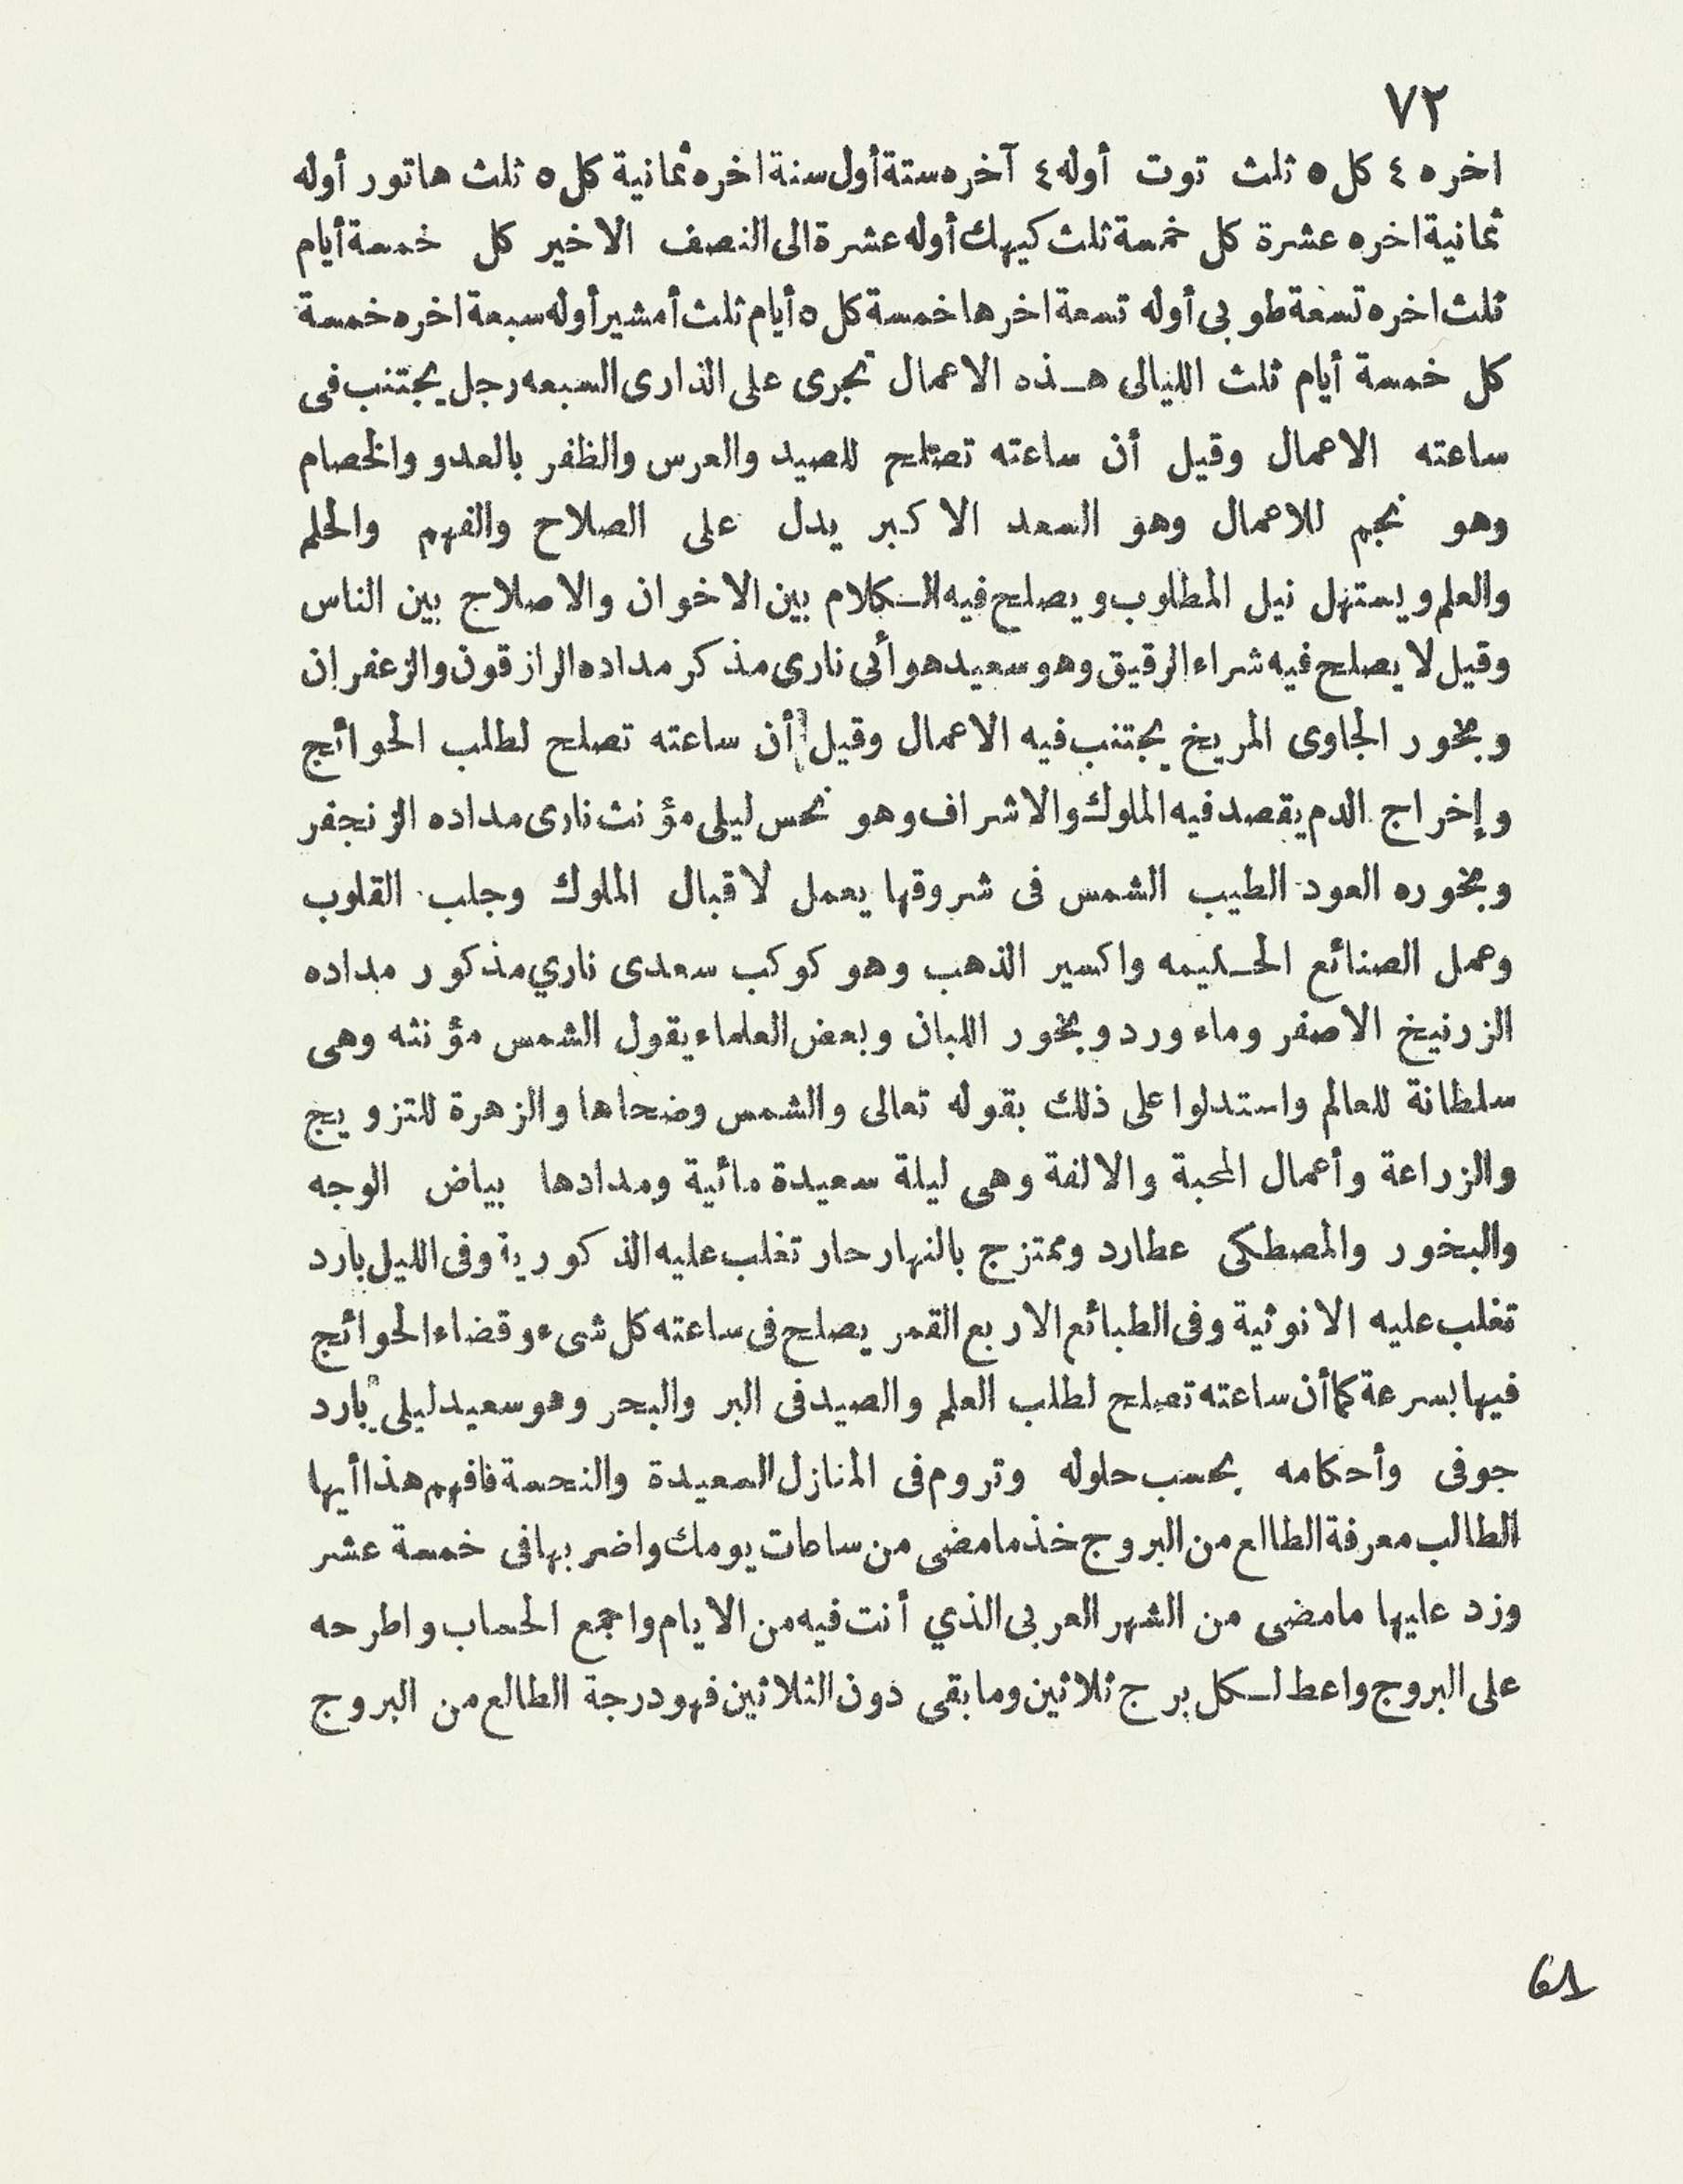 ٧٢
اخره ٤ كل ٥ ثلث توت أوله ٤ آخره ستة أول سنة اخره ثمانية كل ٥ ثلث هاتور أوله
ثمانية اخره عشرة كل خمسة ثلث كيهك أوله عشرة الى النصف الاخير كل خمسة أيام
ثلث اخره تسعة طوبى أوله تسعة اخرها خمسة كل ٥ أيام ثلث أمشير أوله سبعة اخره خمسة
كل خمسة أيام ثلث الليالى هـذه الاعمال تجرى على الذارى السبعه رجل يجتنب فى
ساعته الاعمال وقيل أن ساعته تصلح للصيد والعرس والظفر بالعدو والخصام
وهو نجم للاعمال وهو السعد الاكبر يدل على الصلاح والفهم والحلم
والعلم ويستهل نيل المطلوب ويصلح فيه الـكلام بين الاخوان والاصلاح بين الناس
وقيل لا يصلح فيه شراء الرقيق وهو سعيد هوأئى نارى مذكر مداده الرازقون والزعفران
وبخور الجاوى المريخ يجتنب فيه الاعمال وقيل أن ساعته تصلح لطلب الحوائج
وإخراج الدم يقصد فيه الملوك والاشراف وهو نحس ليلى مؤنث نارى مداده الزنجفر
وبخوره العود الطيب الشمس فى شروقها يعمل لاقبال الملوك وجلب القلوب
وعمل الصنائع الحـليمه واكسير الذهب وهو كوكب سعدى ناري مذكور مداده
الزرنيخ الاصفر وماء ورد وبخور اللبان وبعض العلماء يقول الشمس مؤنثه وهى
سلطانة للعالم واستدلوا على ذلك بقوله تعالى والشمس وضحاها والزهرة للتزويج
والزراعة وأعمال المحبة والالفة وهى ليلة سعيدة مائية ومدادها بياض الوجه
والبخور والمصطكى عطارد وممتزج بالنهار حار تغلب عليه الذكورية وفى الليل بارد
تغلب عليه الانوثية وفى الطبائع الاربع القمر يصلح فى ساعته كل شىء وقضاء الحوائج
فيها بسرعة كما أن ساعته تصلح لطلب العلم والصيد فى البر والبحر وهو سعيد ليلى بارد
جوفى وأحكامه بحسب حلوله وتروم فى المنازل السعيدة والنحسة فافهم هذا أيها
الطالب معرفة الطالع من البروج خذ مامضى من ساعات يومك واضر بها فى خمسة عشر
وزد عليها مامضى من الشهر العربى الذي أنت فيه من الايام واجمع الحساب واطرحه
على البروج واعط لـكل برج ثلاثين ومابقى دون الثلاثين فهو درجة الطالع من البروج